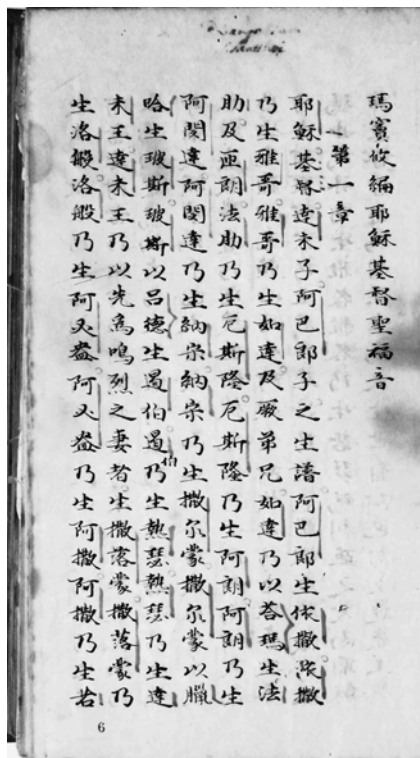 瑪竇攸編耶穌基督聖福音
第一章
耶穌基督達未子阿巴郎子之生譜阿巴郎生依撒依撒
乃生雅哥雅哥乃生如達及厥弟兄如達乃以荅瑪生法
助及匝朗法助乃生厄斯隆厄斯隆乃生阿朗阿朗乃生
阿閔達阿閔達乃生納宗納宗乃生撒尔蒙撒尔蒙以臘
哈生玻斯玻斯以吕德生遏伯遏伯乃生熱瑟熱瑟乃生達
未王達未王乃以先為嗚烈之妻者生撒落蒙撒落蒙乃
生洛般洛般乃生阿必盎阿必盎乃生阿撒阿撒乃生若
6